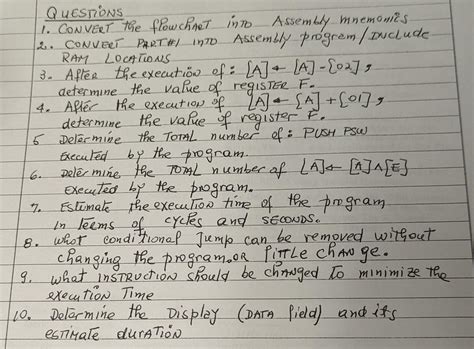 QUESTIONS
1. CONVERT the flowchart INTO Assembly mnemonics
2. CONVERT PART#1 INTO Assembly program/INCLUDE
RAM LOCATIONS
3. After the execution of : [A] ← [A] - [02] ,
determine the value of REGISTER F.
4. After the execution of [A] ← [A] + [01] ,
determine the value of register F.
5 Determine the TOTAL number of : PUSH PSW
Executed by the program.
6. Determine the TOTAL number of [A] ← [A] ∧ [E]
Executed by the program.
7. Estimate the execution time of the program
in terms of cycles and seconds.
8. what conditional Jump can be removed without
changing the program.OR little change.
9. what INSTRUCTION should be changed to minimize the
execution Time
10. Determine the Display (DATA field) and its
estimate duration